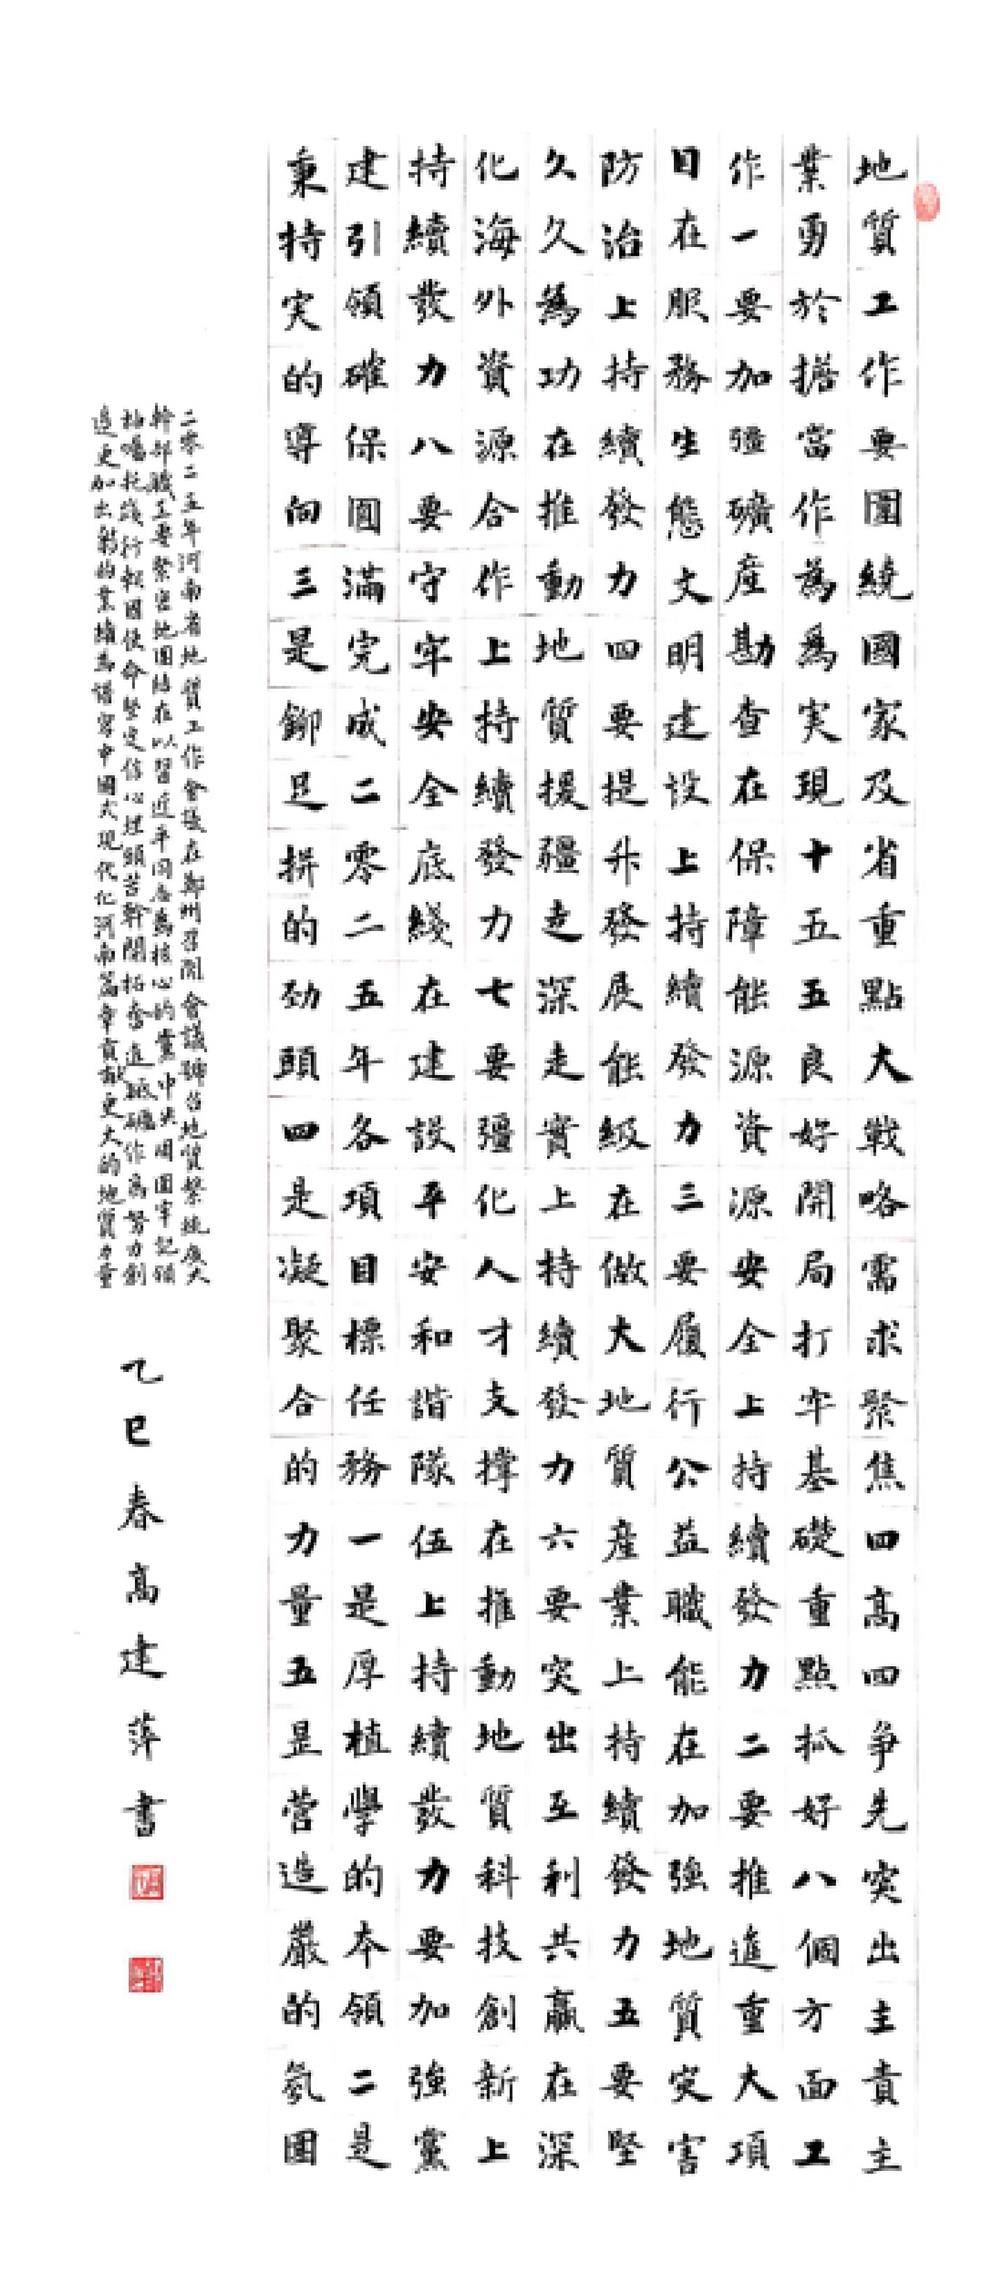 地質工作要圍繞國家及省重點大戰略需求聚焦四高四争先突出主責主
業勇於擔當作為爲实現十五五良好開局打牢基礎重點抓好八個方面工
作一要加强礦産勘查在保障能源資源安全上持續發力二要推進重大項
目在服務生態文明建设上持續發力三要履行公益職能在加強地質灾害
防治上持續發力四要提升發展能級在做大地質産業上持續發力五要堅
久久為功在推動地質援疆走深走實上持續發力六要突出互利共贏在深
化海外資源合作上持續發力七要强化人才支撑在推動地質科技創新上
持續發力八要守牢安全底綫在建設平安和諧隊伍上持續發力要加強黨
建引領確保圓滿完成二零二五年各項目標任務一是厚植學的本領二是
秉持实的導向三是鉚足拼的劲頭四是凝聚合的力量五是营造嚴的氛圍
二零二五年河南省地質工作會議在鄭州召開會議號召地質系統廣大
幹部職工要緊密地團結在以習近平同志為核心的黨中央周圍牢記領
袖囑托践行報國使命堅定信心埋頭苦幹開拓奮進砥礪作為努力創
造更加出彩的業績為譜寫中國式現代化河南篇章貢献更大的地質力量
乙巳春高建萍書